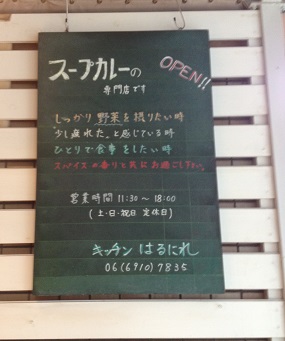 スープカレーの
OPEN!!
専門店です
しっかり野菜を摂りたい時
"少し疲れた"と感じている時
ひとりで食事をしたい時
スパイスの香りと共にお過ごし下さい。
営業時間 11:30～18:00
(土・日・祝日 定休日)
キッチン はるにれ
06(6910)7835